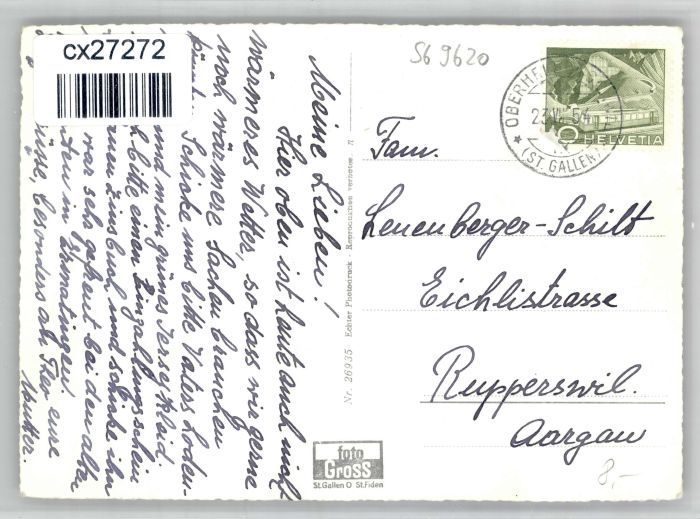 cx27272
S6 9620
OBERHE
23. V. 54
(ST. GALLEN)
10 HELVETIA
Meine Lieben!
Hier oben ist heute auch nicht
wärmeres Wetter, so dass wir gerne
noch wärmere Sachen brauchen
Schicke uns bitte Vaters Loden-
und mein grünes Jerseykleid.
bitte einen Einzahlungsschein
Zinsbuch und schicke ihn
war sehr gefreut bei den alten
in Ermatingen
besonders an Ther eure
Mutter.
Nr. 26935 Echter Photodruck - Reproduktion verboten. R
Fam.
Leuenberger-Schilt
Eichlistrasse
Rupperswil.
Aargau
foto
Gross
St.Gallen O St.Fiden
8,-